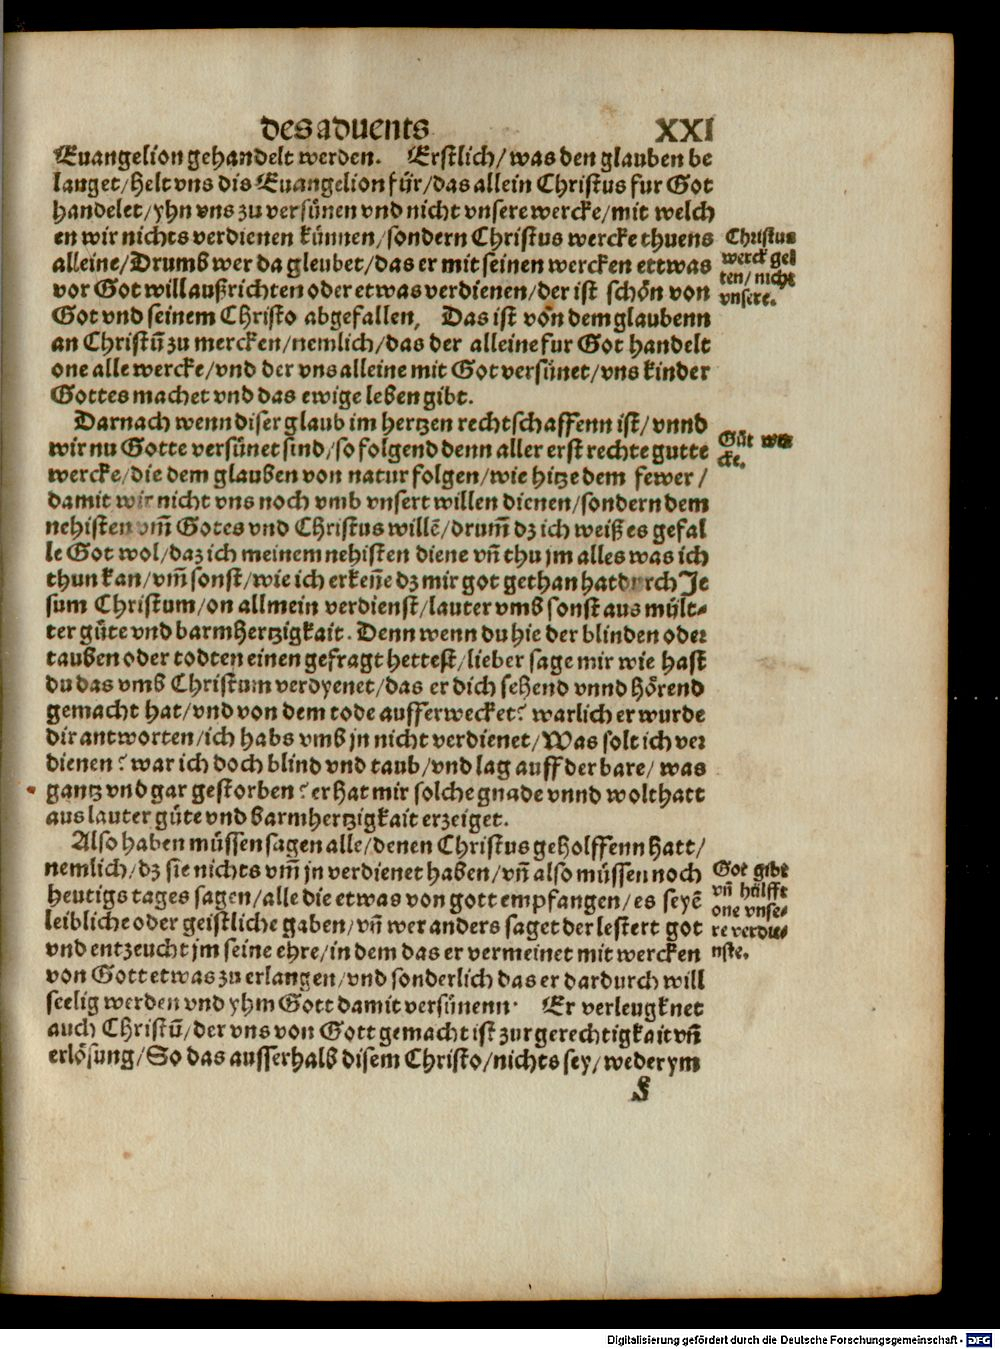 des aduents XXI
Euangelion gehandelt werden. Erstlich/ was den glauben be
langet/ helt vns dis Euangelion für/ das allein Christus fur Got
handelet/ yhn vns zu versünen vnd nicht vnsere wercke/ mit welch
en wir nichts verdienen künnen/ sondern Christus wercke thuens
alleine/ Drumb wer da gleubet/ das er mit seinen wercken ettwas
vor Got will außrichten oder etwas verdienen/ der ist schön von
Got vnd seinem Christo abgefallen, Das ist von dem glaubenn
an Christū zu mercken/ nemlich/ das der alleine fur Got handelt
one alle wercke/ vnd der vns alleine mit Got versünet/ vns kinder
Gottes machet vnd das ewige leben gibt.
Christus
werck gel
ten/ nicht
vnsere.
Darnach wenn diser glaub im hertzen rechtschaffenn ist/ vnnd
wir nu Gotte versünet sind/ so folgend denn aller erst rechte gutte
wercke/ die dem glauben von natur folgen/ wie hitze dem fewer/
damit wir nicht vns noch vmb vnsert willen dienen/ sondern dem
nehisten vm̄ Gotes vnd Christus willē/ drum̄ dz ich weiß es gefal
le Got wol/ daz ich meinem nehisten diene vn̄ thu jm alles was ich
thun kan/ vm̄ sonst/ wie ich erken̄e dz mir got gethan hat durch Je
sum Christum/ on all mein verdienst/ lauter vmb sonst aus mült-
ter güte vnd barmhertzigkait. Denn wenn du hie der blinden oder
tauben oder todten einen gefragt hettest/ lieber sage mir wie hast
du das vmb Christum verdyenet/ das er dich sehend vnnd hörend
gemacht hat/ vnd von dem tode aufferwecket? warlich er wurde
dir antworten/ ich habs vmb jn nicht verdienet/ Was solt ich ver
dienen? war ich doch blind vnd taub/ vnd lag auff der bare/ was
gantz vnd gar gestorben? er hat mir solche gnade vnnd wolthatt
aus lauter güte vnd barmhertzigkait erzeiget.
Güt wer
cke.
Also haben müssen sagen alle/ denen Christus geholffenn hatt/
nemlich/ dz sie nichts vm̄ jn verdienet haben/ vn̄ also müssen noch
heutigs tages sagen/ alle die etwas von gott empfangen/ es seyē
leibliche oder geistliche gaben/ vn̄ wer anders saget der lestert got
vnd entzeucht jm seine ehre/ in dem das er vermeinet mit wercken
von Gott etwas zu erlangen/ vnd sonderlich das er dardurch will
seelig werden vnd yhm Gott damit versünenn. Er verleugknet
auch Christū/ der vns von Gott gemacht ist zur gerechtigkait vn̄
erlösung/ So das ausserhalb disem Christo/ nichts sey/ weder ym
Got gibt
vn̄ hülfft
one vnse-
re verdie-
nste.
S
Digitalisierung gefördert durch die Deutsche Forschungsgemeinschaft - DFG